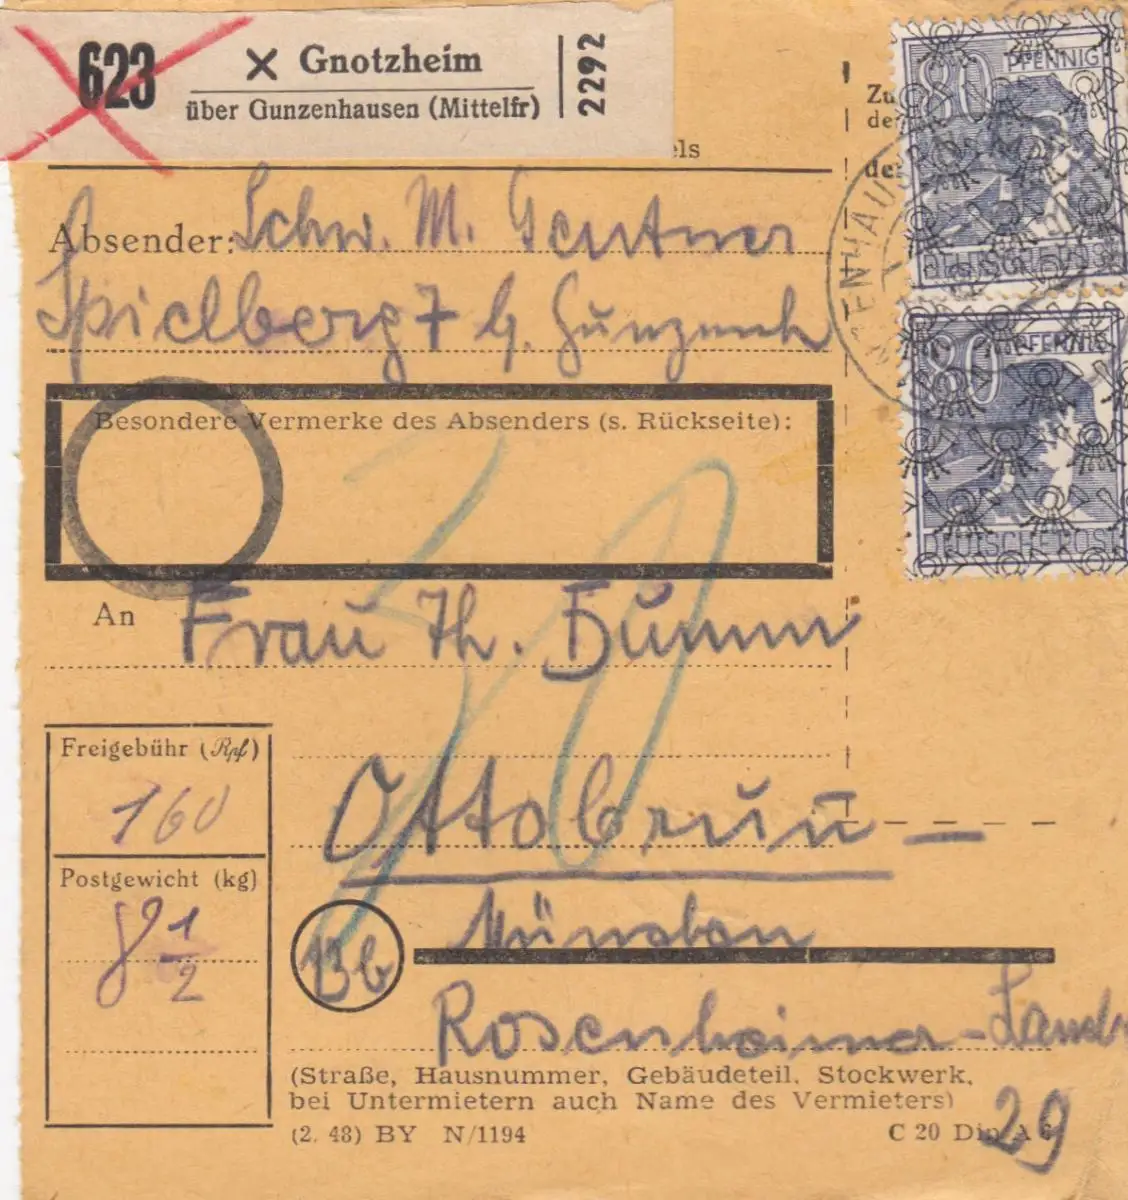 623
× Gnotzheim
über Gunzenhausen (Mittelfr)
2292
els
Absender: Schw. M. Gentner
Spielberg 7 b. Gunzenh
Besondere Vermerke des Absenders (s. Rückseite):
30
An Frau Th.
Freigebühr (Rpf)
160
Postgewicht (kg)
8 1/2
Ottobrunn –
München
13b
Rosenheimer-Landstr
(Straße, Hausnummer, Gebäudeteil, Stockwerk,
bei Untermietern auch Name des Vermieters)
29
(2. 48) BY N/1194
C 20 Din A 6
Zu
de
der
80 PFENNIG
DEUTSCHE POST
80 PFENNIG
DEUTSCHE POST
ZENHAUS